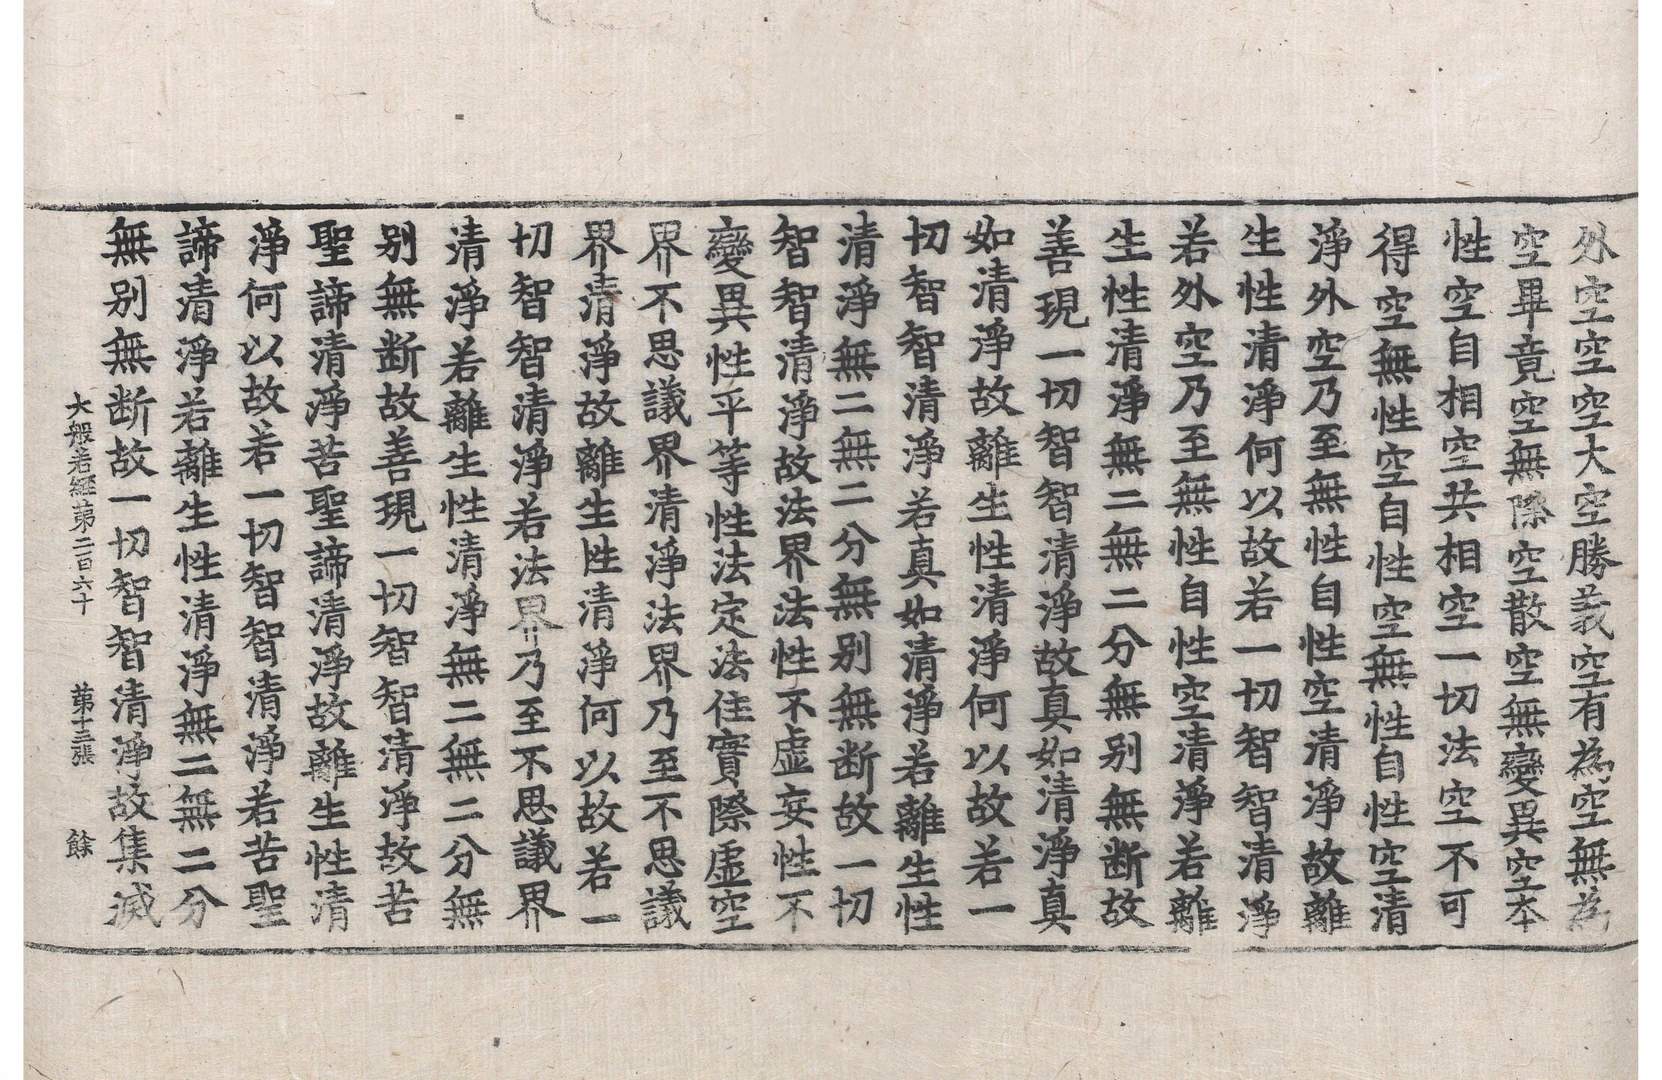 外空空空大空勝義空有為空無為
空畢竟空無際空散空無變異空本
性空自相空共相空一切法空不可
得空無性空自性空無性自性空清
淨外空乃至無性自性空清淨故離
生性清淨何以故若一切智智清淨
若外空乃至無性自性空清淨若離
生性清淨無二無二分無别無断故
善現一切智智清淨故真如清淨真
如清淨故離生性清淨何以故若一
切智智清淨若真如清淨若離生性
清淨無二無二分無别無断故一切
智智清淨故法界法性不虚妄性不
變異性平等性法定法住實際虚空
界不思議界清淨法界乃至不思議
界清淨故離生性清淨何以故若一
切智智清淨若法界乃至不思議界
清淨若離生性清淨無二無二分無
别無断故善現一切智智清淨故苦
聖諦清淨苦聖諦清淨故離生性清
淨何以故若一切智智清淨若苦聖
諦清淨若離生性清淨無二無二分
無别無断故一切智智清淨故集滅
大般若經第二百六十 第十三張 餘